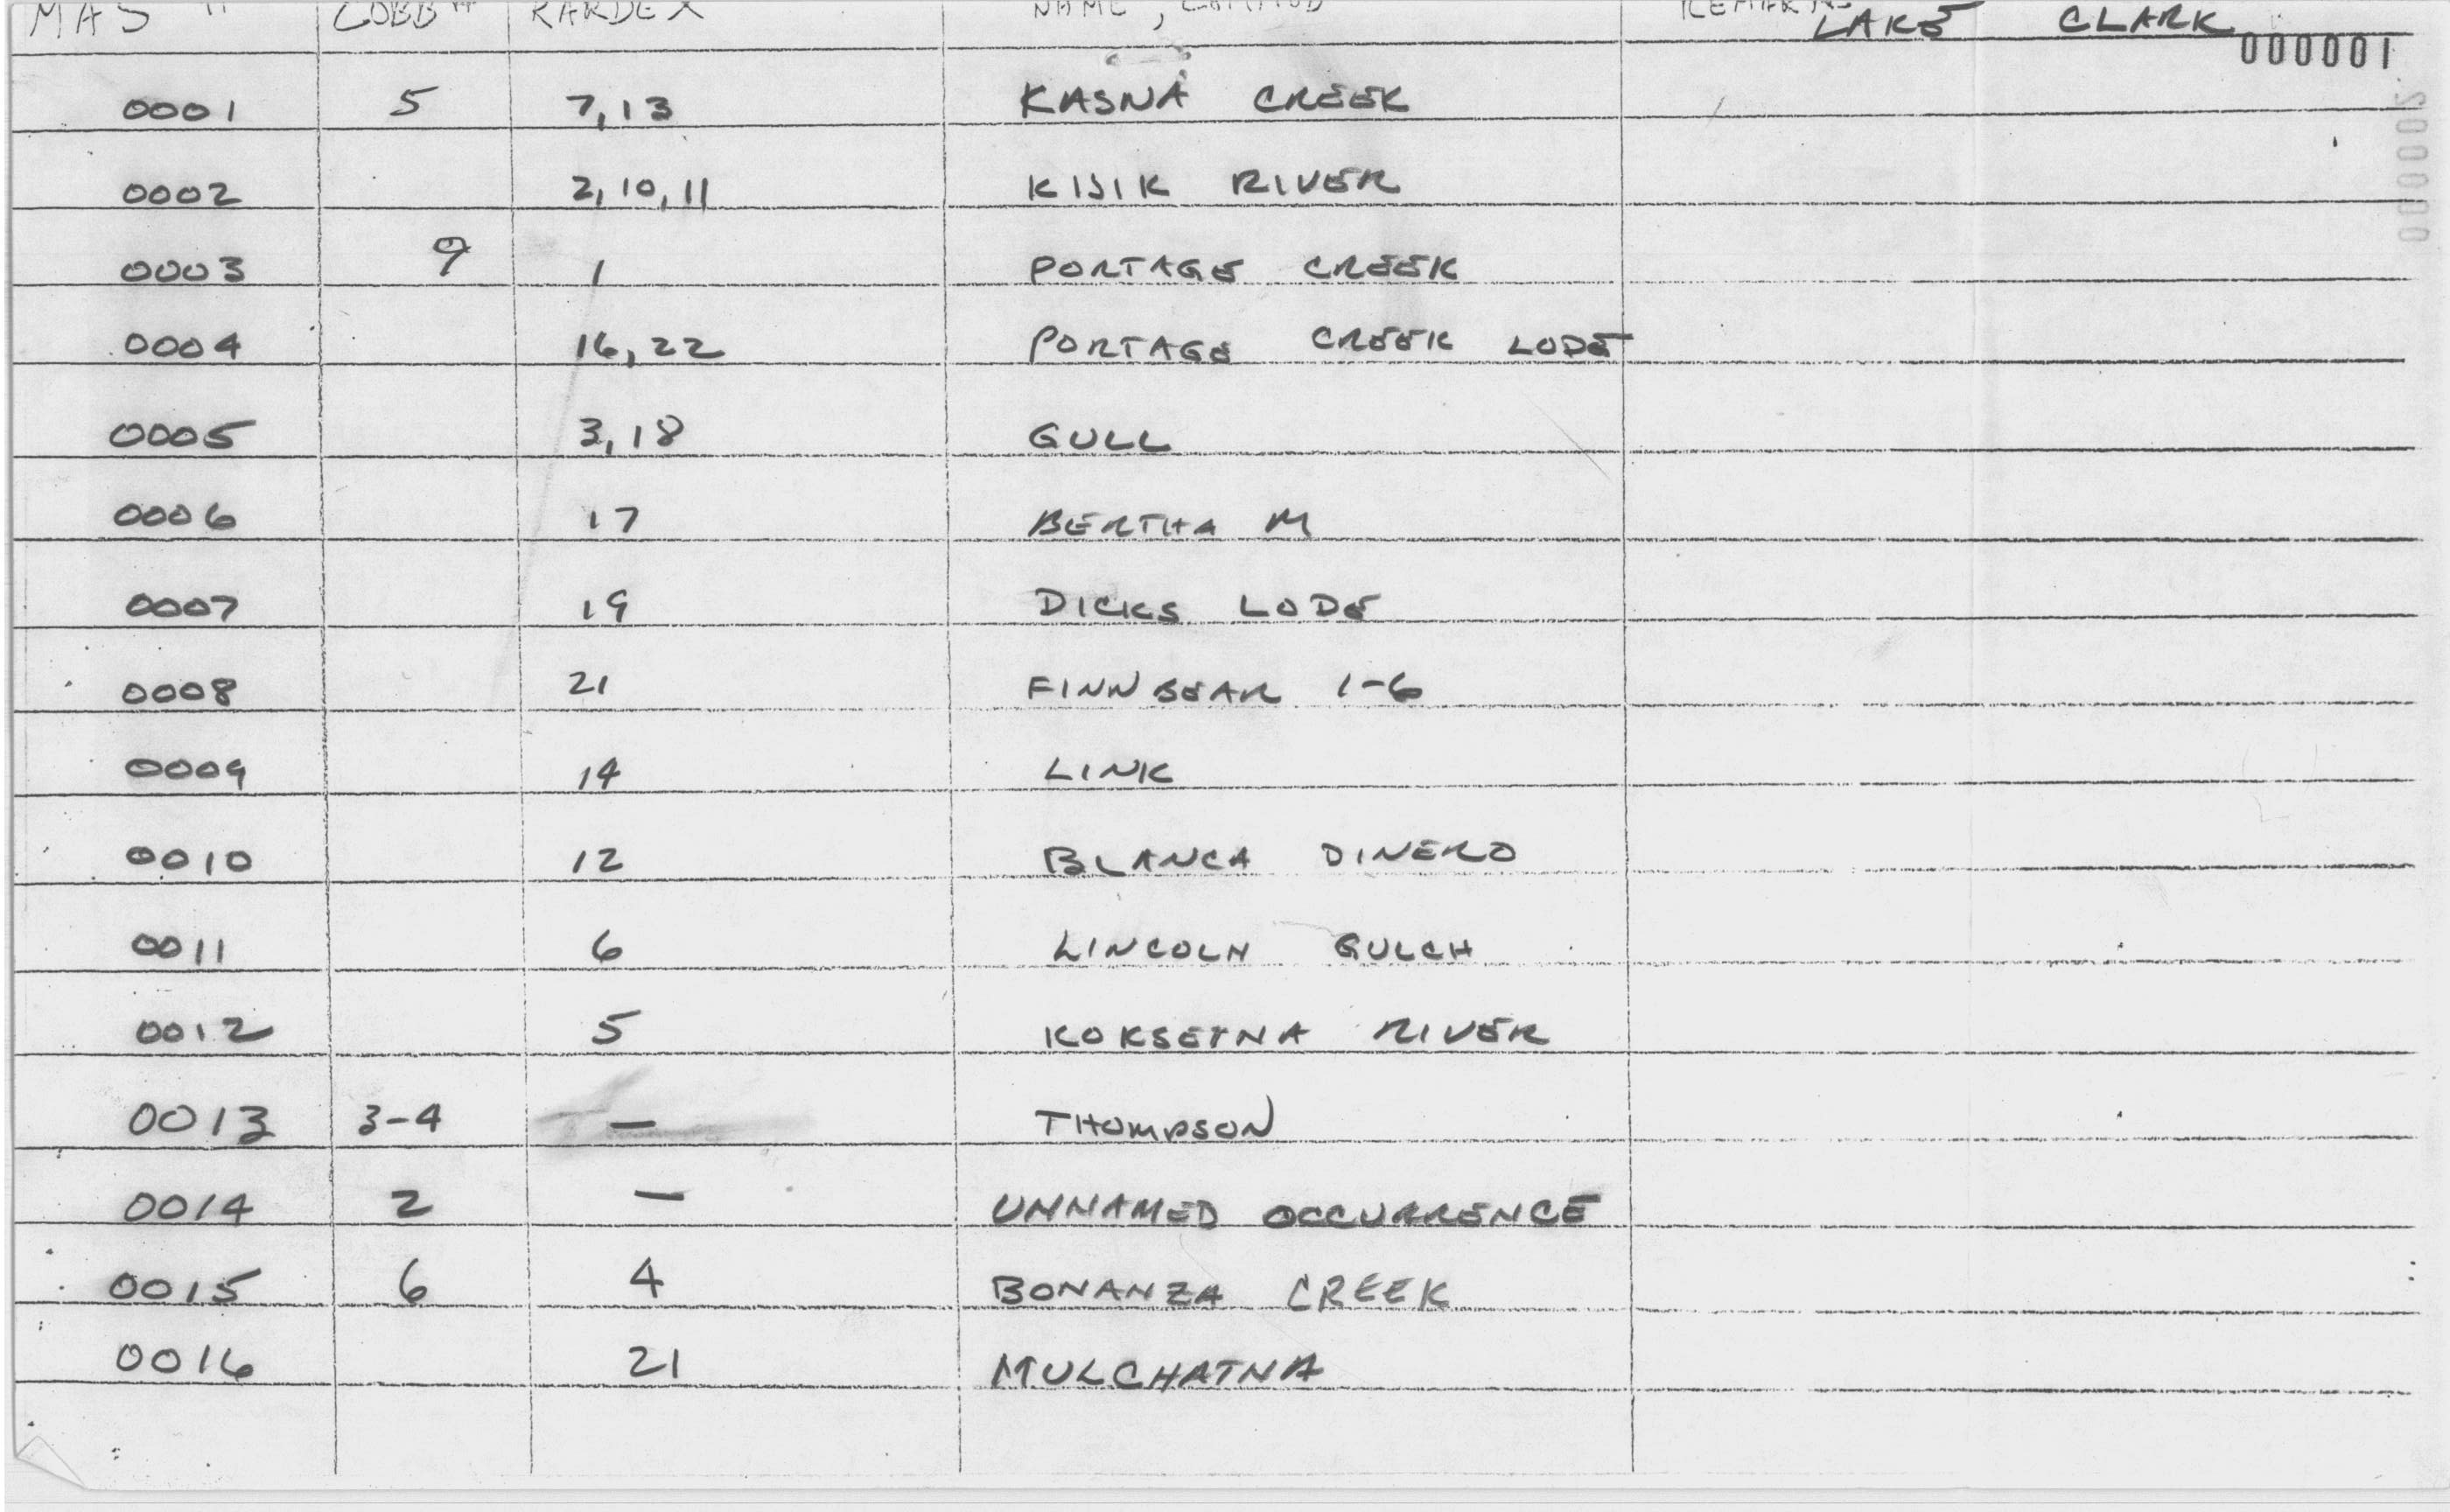 MAS # COBB # KARDEX NAME, REMARKS
LAKE CLARK
000001
000002
0001 5 7,13 KASNA CREEK
0002 2,10,11 KIJIK RIVER
0003 9 1 PORTAGE CREEK
0004 16,22 PORTAGE CREEK LODE
0005 3,18 GULL
0006 17 BERTHA M
0007 19 DICKS LODE
0008 21 FINNBEAR 1-6
0009 14 LINK
0010 12 BLANCA DINERO
0011 6 LINCOLN GULCH
0012 5 KOKSETNA RIVER
0013 3-4 — THOMPSON
0014 2 — UNNAMED OCCURRENCE
0015 6 4 BONANZA CREEK
0016 21 MULCHATNA